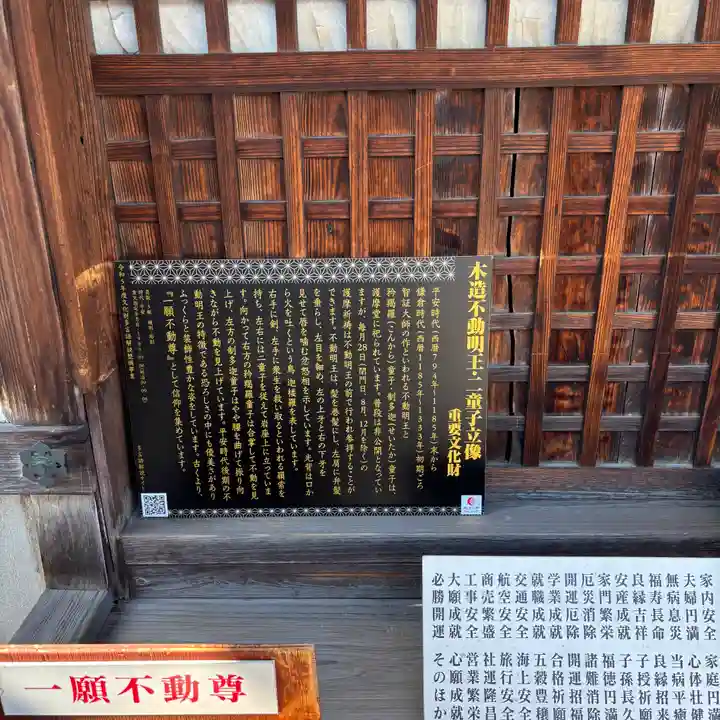 木造不動明王二童子立像
重要文化財
平安時代(西暦794年-1185年)末から
鎌倉時代(西暦1185年-1333年)初期ごろ
智証大師の作といわれる不動明王と
矜羯羅(こんがら)童子・制多迦(せいたか)童子は、
護摩堂に祀られています。普段は非公開となってい
ますが、毎月28日(閉門日で8月、12月を除く)の
護摩祈祷には不動明王の前で行われ参拝することが
できます。不動明王は、髪を巻髪にし、左肩に弁髪
を垂らし、左目を細め、左の上牙と右の下牙を
見せて唇を噛む忿怒相を示しています。光背は口か
ら火を吐くという鳥、迦楼羅を表しています。
右手に剣、左手に衆生を救い取るといわれる羂索を
持ち、左右には二童子を従えて岩座に立っていま
す。向かって右方の矜羯羅童子は合掌して不動を見
上げ、左方の制多迦童子はやや腰を曲げて振り向
きながら不動を見上げています。平安時代後期の不
動明王の特徴である恐ろしさの中にも優美さがあり
ふっくらと装飾性豊かな姿をしています。古くより、
『一願不動尊』として信仰を集めています。
一願不動尊
家内安全 家庭円満
夫婦円満 心体壮健
無病息災 当病平癒
福寿長命 良縁招来
良縁吉祥 子授祈願
安産成就 子孫長久
家門繁栄 福徳円満
厄災消除 諸難消除
開運厄除 開運招福
学業成就 合格祈願
就職成就 五穀豊穣
交通安全 海上安全
航空安全 旅行安全
商売繁盛 社運隆昌
工事安全 営業繁栄
大願成就 心願成就
必勝開運 そのほか